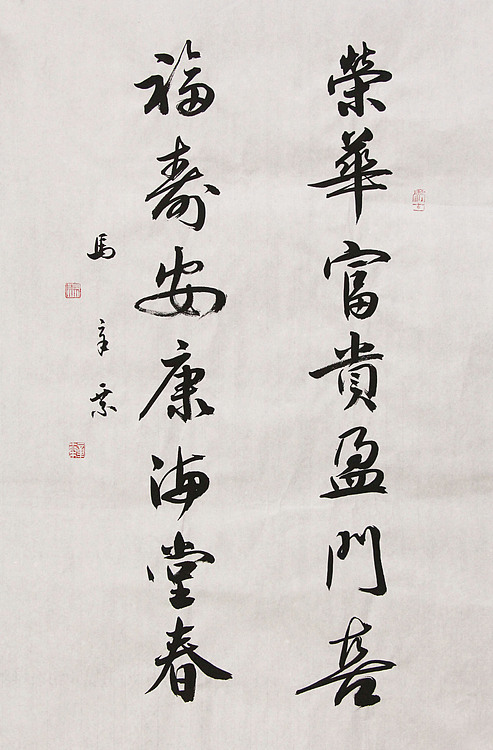 榮華富貴盈門喜
福寿安康滿堂春
馬